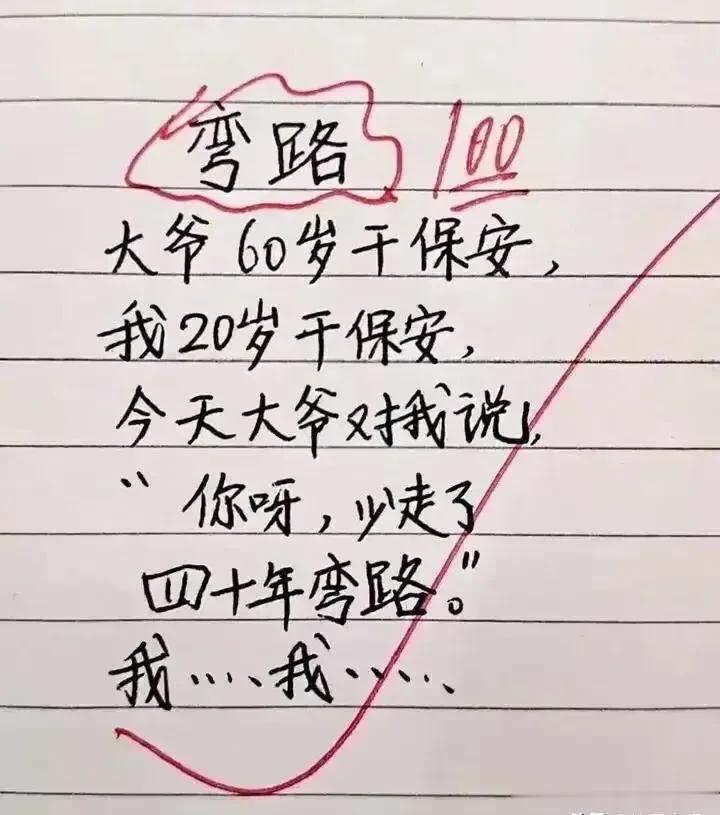 弯路 100
大爷60岁干保安，
我20岁干保安，
今天大爷对我说，
“你呀，少走了
四十年弯路。”
我....我.....